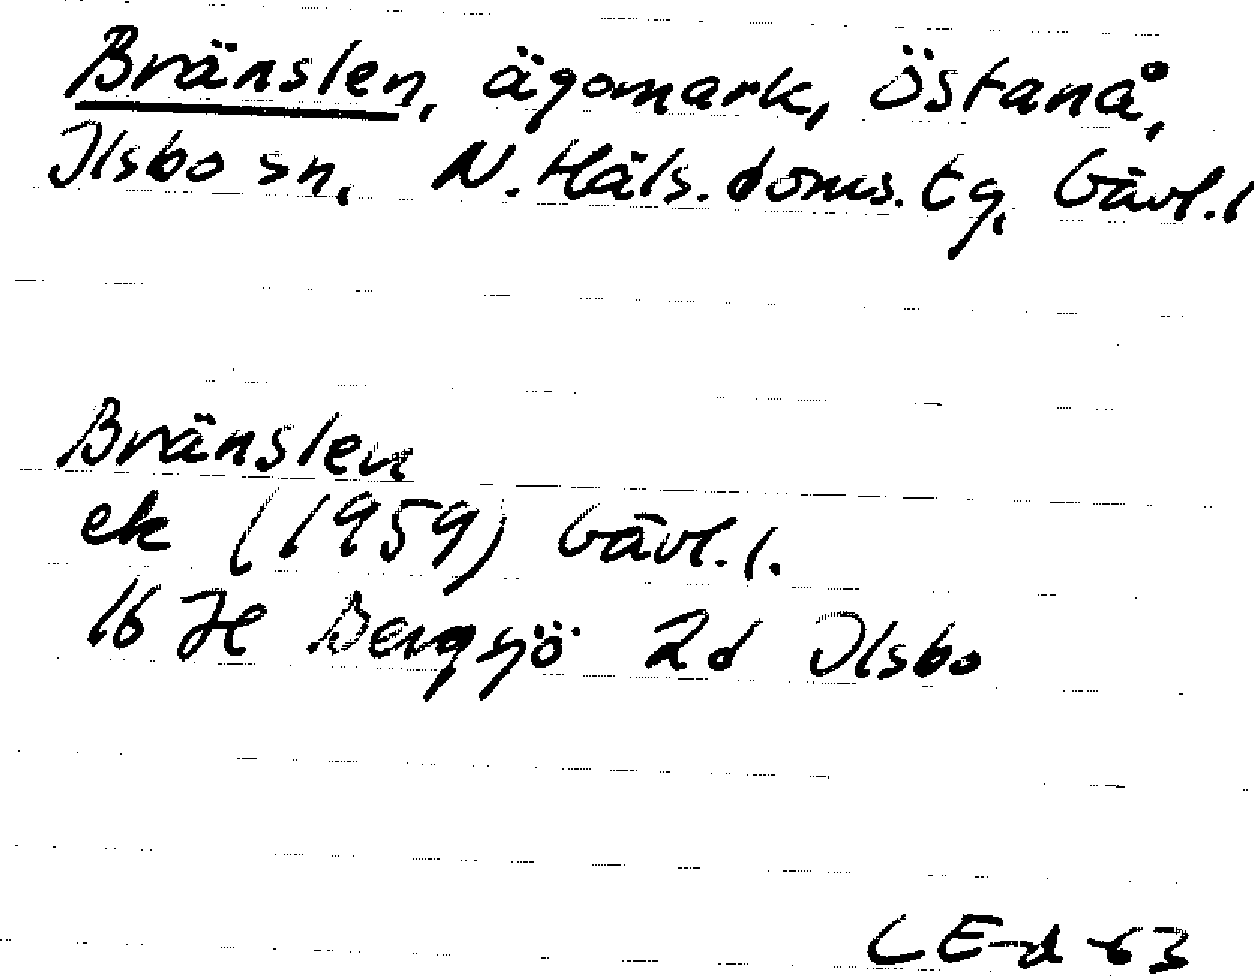 Bränslen, ägomark, Östanå,
Ilsbo sn, N. Häls. doms. tg, Gävl. l
Bränslen
ek (1959) Gävl. l.
16 H Bergsjö 2d Ilsbo
CE-d -63